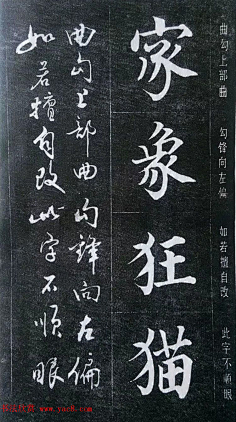 曲勾上部曲 勾锋向左偏 如若擅自改 此字不顺眼
家象狂猫
曲勾上部曲勾锋向左偏
如若擅自改此字不顺眼